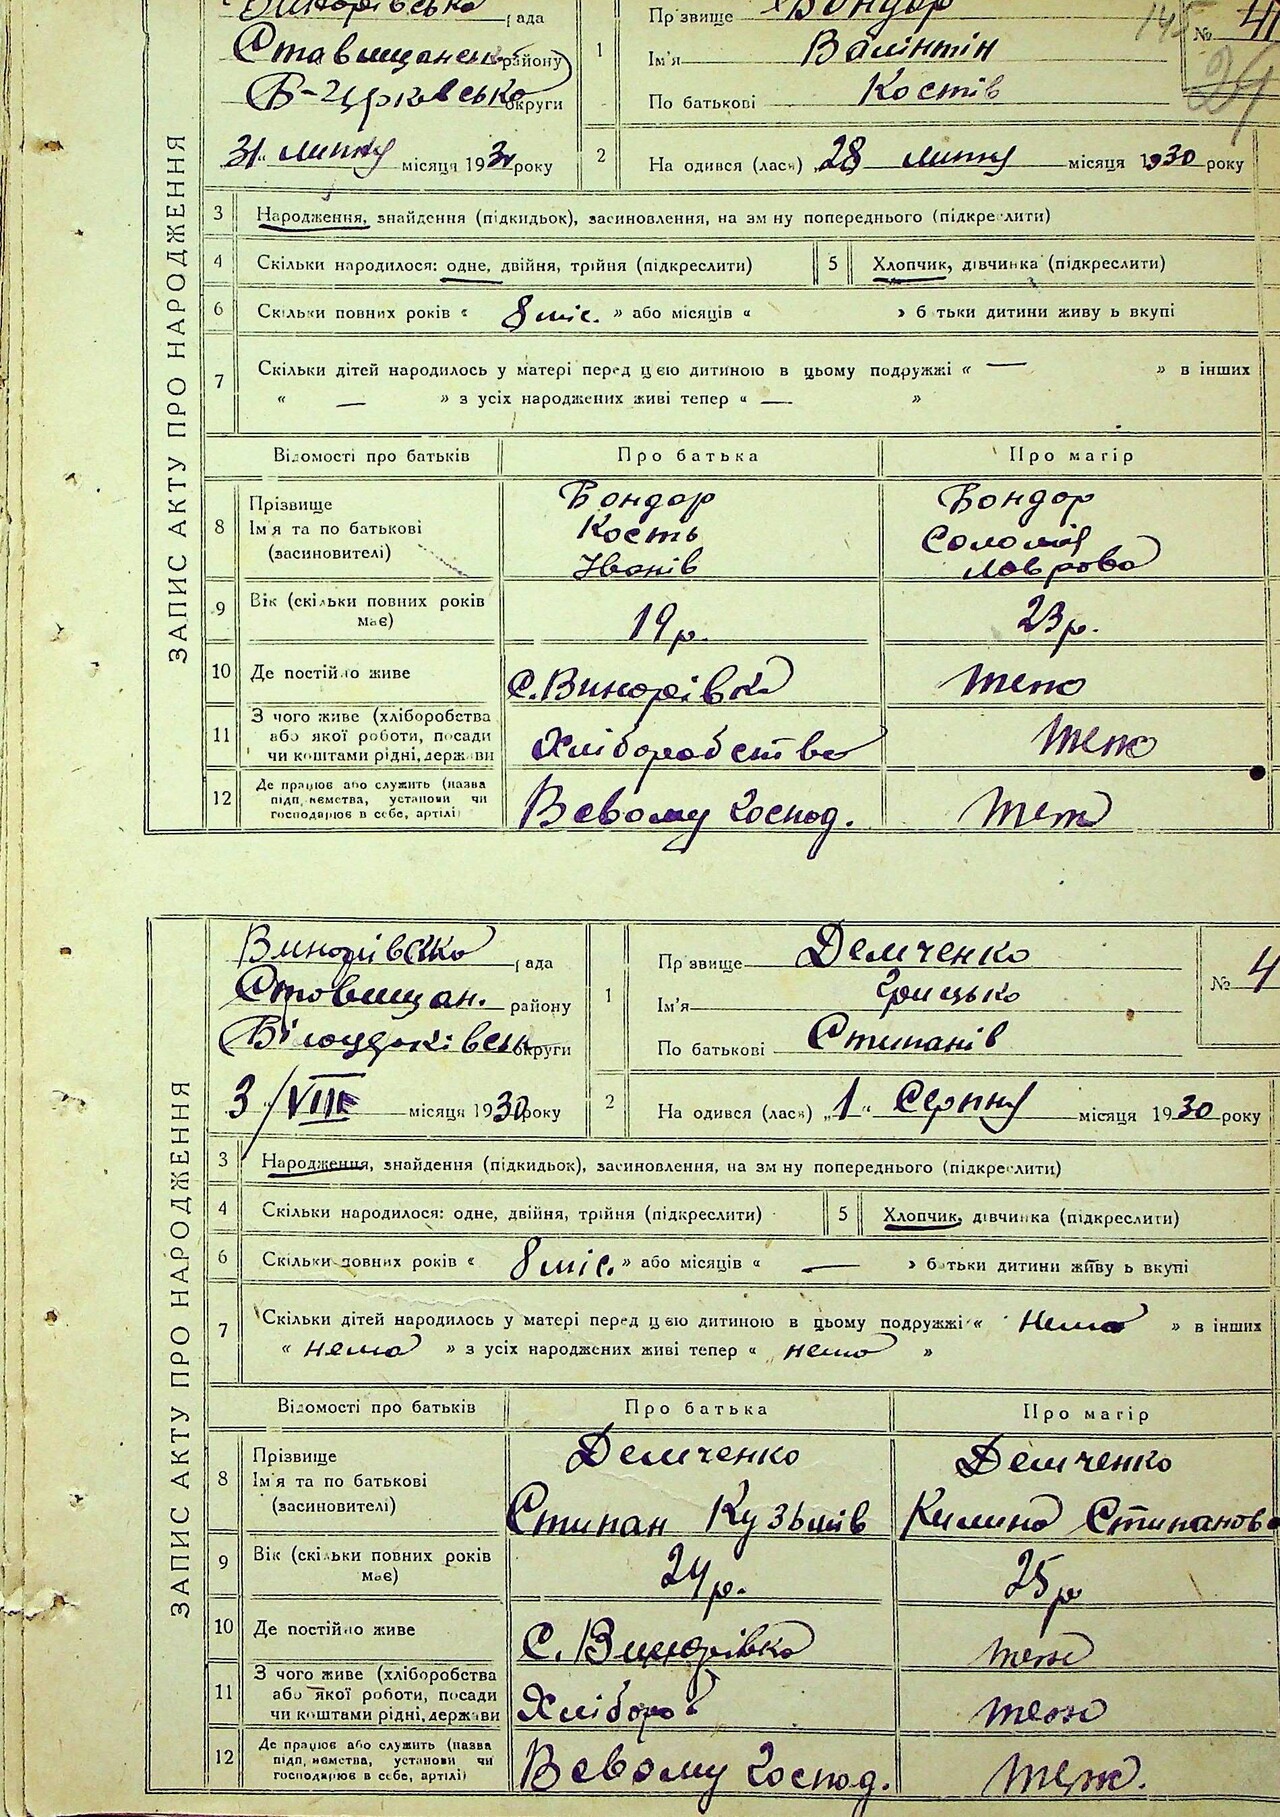 рада
Ставищанськ району
Б-Церквсько округи
31 липня місяця 1930 року
1
Прізвище Бондар
Ім'я Валінтін
По батькові Костів
145
№ 41
24
2
На одився (лася) „28 липня місяця 1930 року
ЗАПИС АКТУ ПРО НАРОДЖЕННЯ
3 Народження, знайдення (підкидьок), засиновлення, на зм ну попереднього (підкреслити)
4 Скільки народилося: одне, двійня, трійня (підкреслити)
5 Хлопчик, дівчинка (підкреслити)
6 Скільки повних років « 8 міс. » або місяців « » б тьки дитини живу ь вкупі
7 Скільки дітей народилось у матері перед цією дитиною в цьому подружжі « — » в інших
« — » з усіх народжених живі тепер « — »
Відомості про батьків
Про батька
Про матір
8
Прізвище
Ім'я та по батькові
(засиновителі)
Бондар
Кость
Іванів
Бондар
Соломія
Лаврова
9
Вік (скільки повних років
має)
19 р.
23 р.
10 Де постійно живе
с. Винарівка
теж
11
З чого живе (хліборобства
або якої роботи, посади
чи коштами рідні, держави
Хліборобство
теж
12
Де працює або служить (назва
підп, иємства, установи чи
господарює в себе, артілі)
В свому господ.
теж
Винарівска рада
Ставищан. району
Білоцерківськ округи
3/VIII місяця 1930 року
1
Пр звище Демченко
Ім'я Грицько
По батькові Стипанів
№ 4
2
На одився (лася) „1“ Серпня місяця 1930 року
ЗАПИС АКТУ ПРО НАРОДЖЕННЯ
3 Народження, знайдення (підкидьок), засиновлення, на зм ну попереднього (підкреслити)
4 Скільки народилося: одне, двійня, трійня (підкреслити)
5 Хлопчик, дівчинка (підкреслити)
6 Скільки повних років « 8 міс. » або місяців « — » б тьки дитини живу ь вкупі
7 Скільки дітей народилось у матері перед цією дитиною в цьому подружжі « Нема » в інших
« нема » з усіх народжених живі тепер « нема »
Відомості про батьків
Про батька
Про матір
8
Прізвище
Ім'я та по батькові
(засиновителі)
Демченко
Стипан Кузьмів
Демченко
Килина Стипанова
9
Вік (скільки повних років
має)
24 р.
25 р
10 Де постійно живе
С. Винарівка
теж
11
З чого живе (хліборобства
або якої роботи, посади
чи коштами рідні, держави
Хлібороб
теж
12
Де працює або служить (назва
підп, иємства, установи чи
господарює в себе, артілі)
В свому господ.
теж.